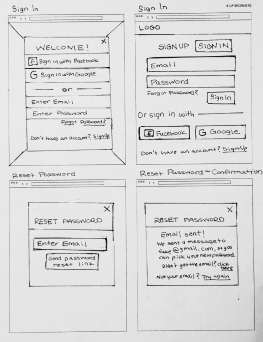 Sign In
WELCOME!
X
f Sign in with Facebook
G Sign in with Google
or
Enter Email
Enter Password
Forgot Password?
Don't have an account? Sign Up
Sign In
LOGO
SIGN UP SIGN IN
Email
Password
Forgot Password?
Sign In
Or sign in with
f Facebook
G Google
Don't have an account? Sign Up
Reset Password
X
RESET PASSWORD
Enter Email
Send password
reset link
Reset Password ~ Confirmation
X
RESET PASSWORD
Email sent!
We sent a message to
@gmail.com, so you
can pick your new password
Didn't get the email? Click
here
Not your email? Try again